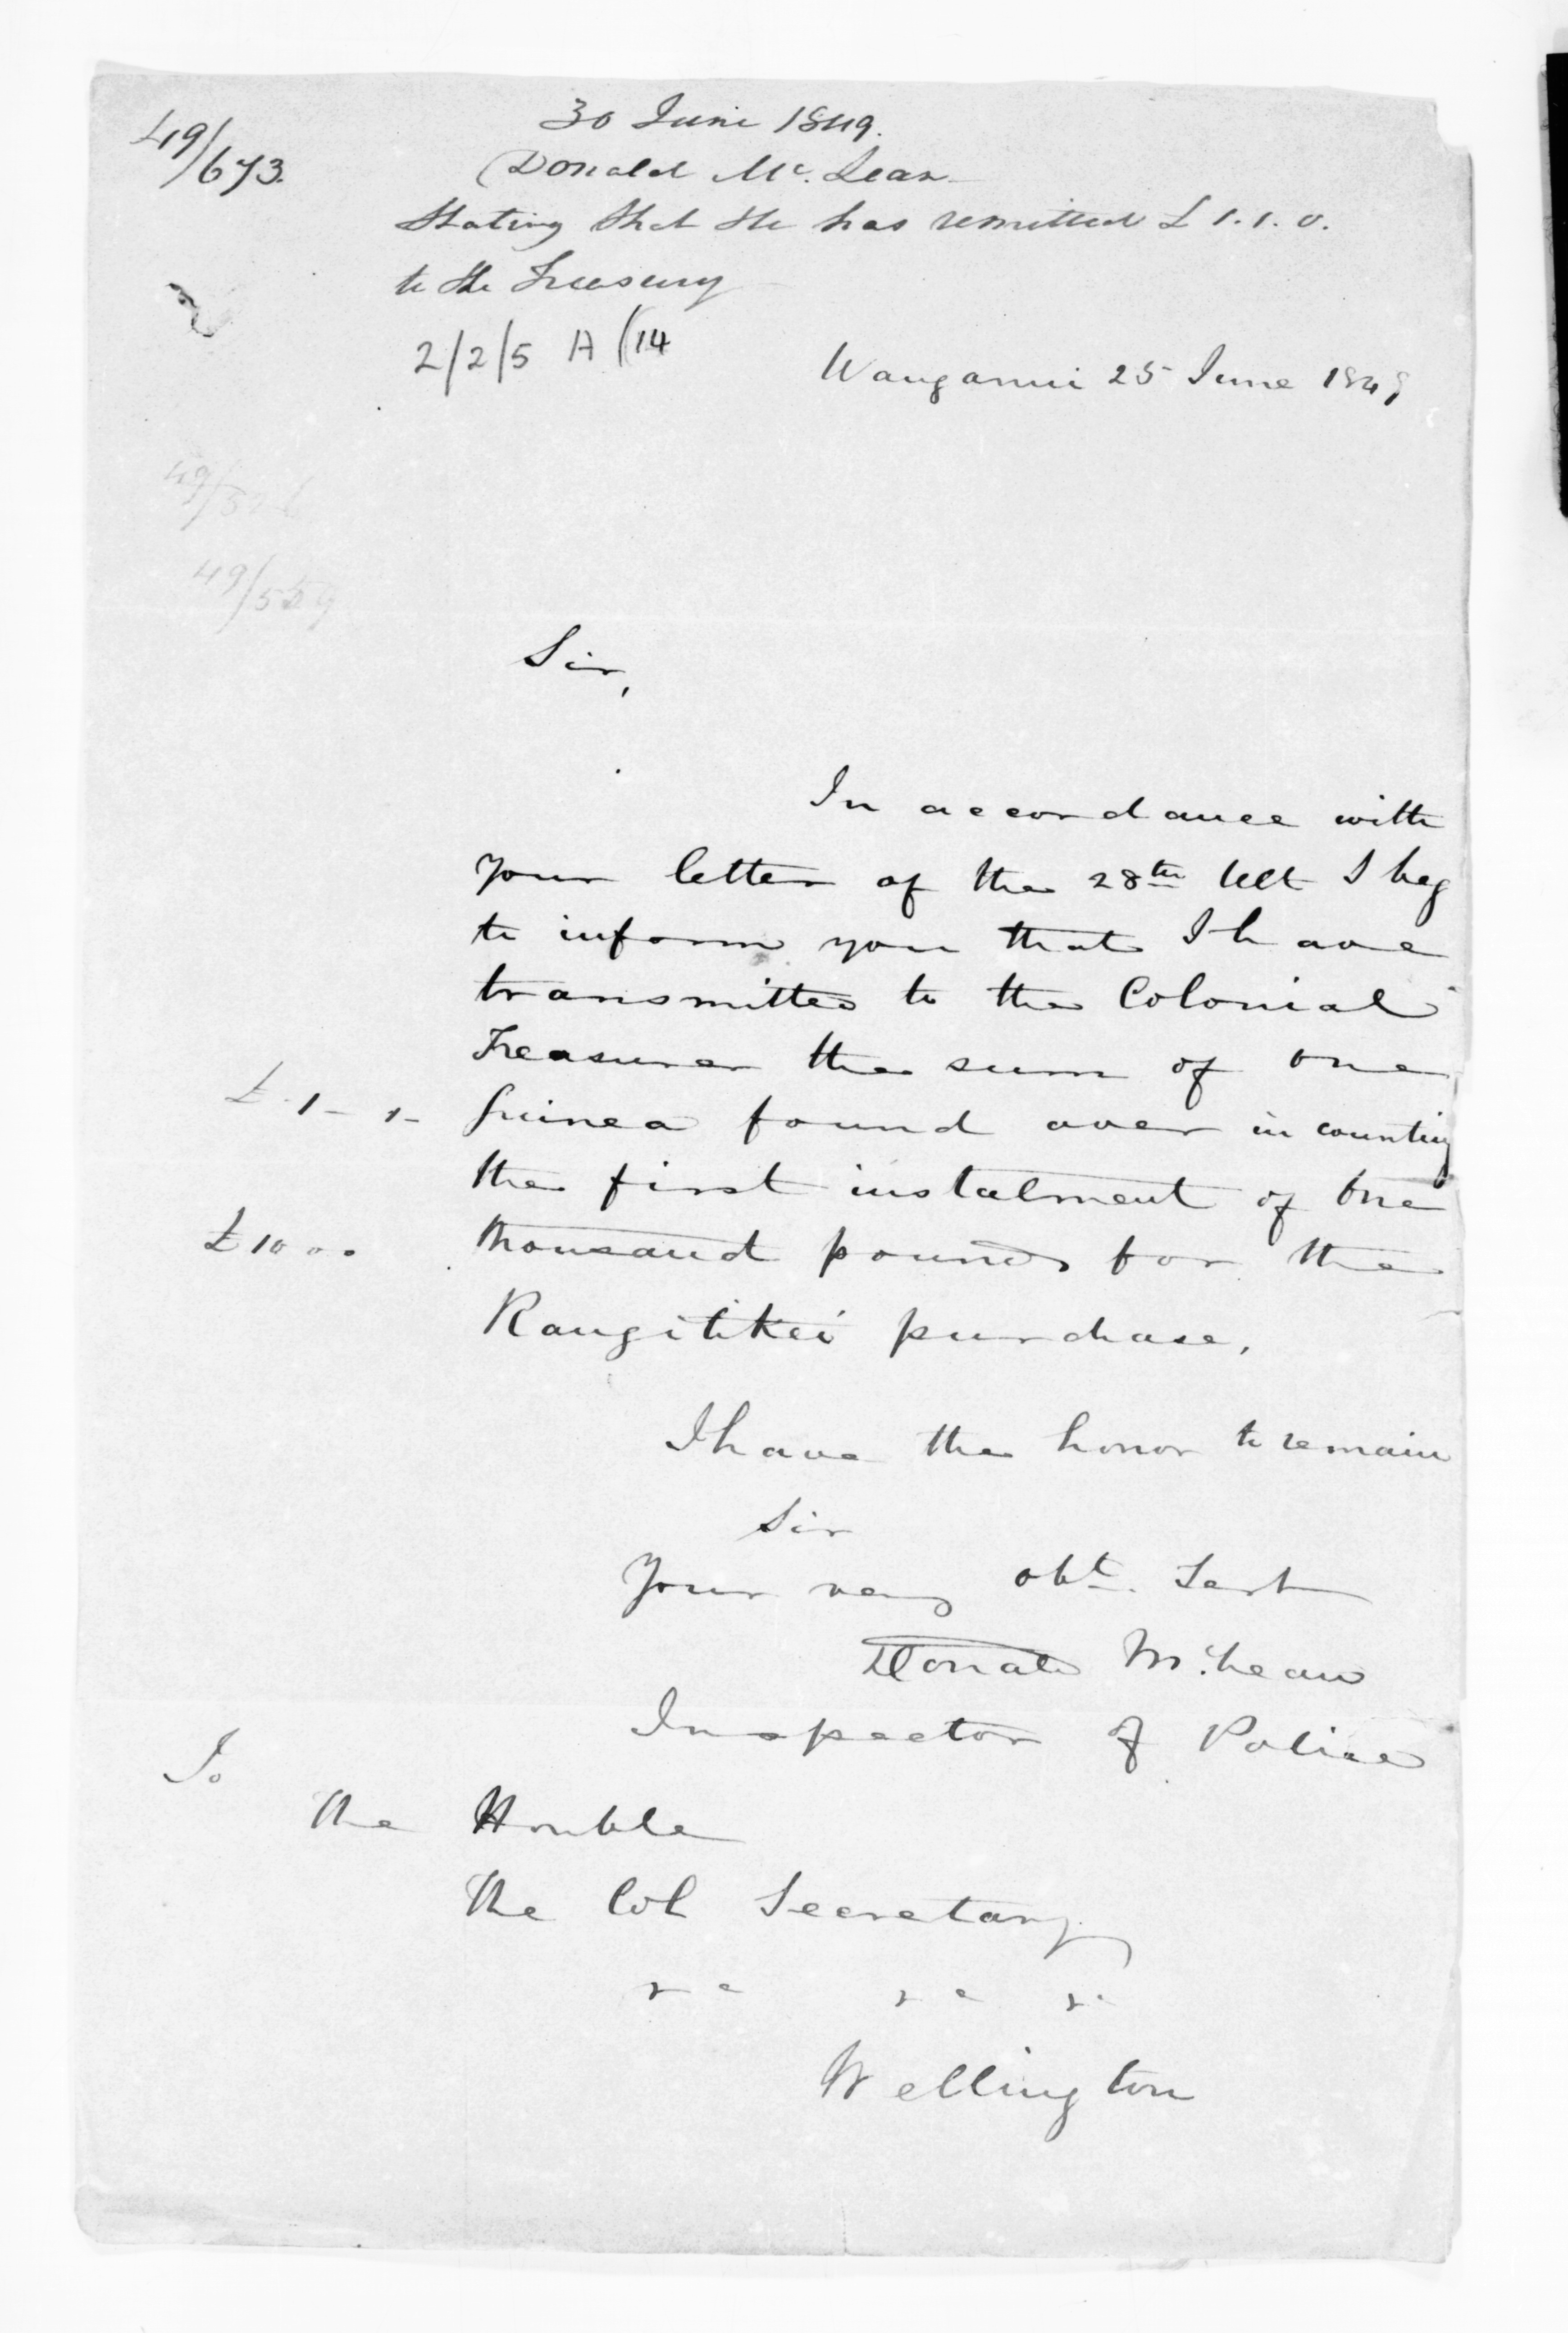 49/673.
30 June 1849.
Donald Mc. Lean
Stating that He has remitted £ 1.1.0.
to the Treasury
2/2/5 A (14
Wanganui 25 June 1849
49/526
49/559
Sir,
In accordance with
your letter of the 28th Ult I beg
to inform you that I have
transmitted to the Colonial
Treasurer the sum of one
£ 1 - 1 - Guinea found over in counting
the first instalment of One
£ 1000 thousand pounds for the
Rangitikei purchase,
I have the honor to remain
Sir
Your very obt. Servt
Donald McLean
Inspector of Police
To
the Honble
the Col Secretary
&c &c &c
Wellington